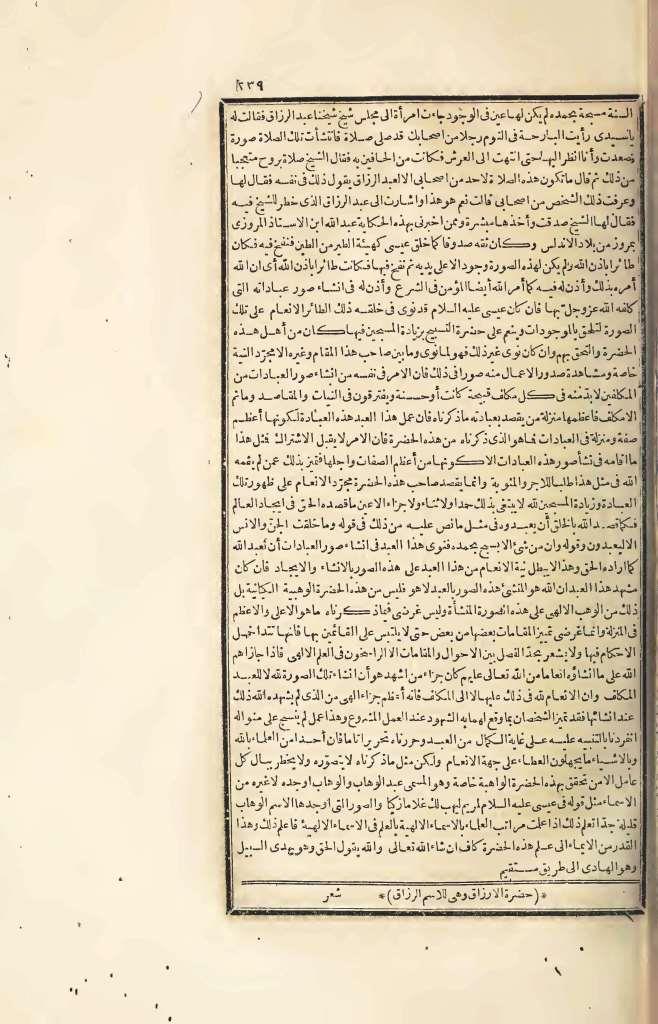 ٢٣٩
السنة مسبحة بحمده لم يكن لها عين فى الوجود جاءت امرأة الى مجلس شيخ شيخنا عبد الرزاق فقالت له
ياسيدى رأيت البارحة فى النوم رجلا من اصحابك قد صلى صلاة فانتشأت تلك الصلاة صورة
فصعدت وأنا انظر اليها حتى انتهت الى العرش فكانت من الحافين به فقال الشيخ صلاة بروح متعجبا
من ذلك ثم قال ما تكون هذه الصلاة لاحد من اصحابى الا لعبد الرزاق يقول ذلك فى نفسه فقال لها
وعرفت ذلك الشخص من اصحابى قالت نعم هو هذا واشارت الى عبد الرزاق الذى خطر للشيخ فيه
فقال لها الشيخ صدقت وأخذها مبشرة وممن اخبرنى بهذه الحكاية عبد الله ابن الاستاذ المروزى
بمروز من بلاد الاندلس وكان ثقة صدوقا كما خلق عيسى كهيئة الطير من الطين فنفخ فيه فكان
طائرا باذن الله ولم يكن لهذه الصورة وجود الا على يديه ثم نفخ فيها فكانت طائرا باذن الله أى ان الله
أمره بذلك وأذن له فيه كما أمر الله أيضا المؤمن فى الشرع وأذن له فى انشاء صور عباداته التى
كلفه الله عز وجل بها فان كان عيسى عليه السلام قد نوى فى خلقه ذلك الطائر الانعام على تلك
الصورة لتلحق بالموجودات وينعم على حضرة التسبيح بزيادة المسبحين فيها كان من أهل هذه
الحضرة والتحق بهم وان كان نوى غير ذلك فهو لما نوى وما بين صاحب هذا المقام وغيره الا مجرّد النية
خاصة ومشاهدة صدور الاعمال منه صورا فى ذلك فان الامر فى نفسه من انشاء صور العبادات من
المكلفين لابد منه فى كل مكلف قبيحة كانت أو حسنة ويفترقون فى النيات والمقاصد وما ثم
الا مكلف فاعظمها منزلة من يقصد بعبادته ما ذكرناه فان عمل هذا العبد هذه العبادة لكونها أعظم
صفة ومنزلة فى العبادات فما هو الذى ذكرناه من هذه الحضرة فان الامر لا يقبل الاشتراك فمثل هذا
ما اقامه فى نشأ صور هذه العبادات الا كونها من أعظم الصفات واجلها فتميز بذلك عمن لم يقمه
الله فى مثل هذا طلبا للاجر والمثوبة وانما يقصد صاحب هذه الحضرة مجرّد الانعام على ظهور تلك
العبادة وزيادة المسبحين لله لا يبتغى بذلك حمدا ولا ثناء ولا جزاء الا عين ما قصده الحق فى ايجاد العالم
فكما قصد الله بالخلق أن يعبدوه فى مثل ما نص عليه من ذلك فى قوله وما خلقت الجنّ والانس
الا ليعبدون وقوله وان من شئ الا يسبح بحمده فنوى هذا العبد فى انشاء صور العبادات أن تعبد الله
كما اراده الحق وهذا لا يبطل نية الانعام من هذا العبد على هذه الصور بالانشاء والايجاد فان كان
مشهد هذا العبد ان الله هو المنشئ هذه الصور بالعبد لا هو فليس من هذه الحضرة الوهبية الكيانية بل
ذلك من الوهب الالهى على هذه الصورة المنشأة وليس غرضى فيما ذكرناه ما هو الاعلى والاعظم
فى المنزلة وانما غرضى تمييز المقامات بعضها من بعض حتى لا يلتبس على القائمين بها فانها تتداخل
الاحكام فيها ولا يشعر بحدّ الفصل بين الاحوال والمقامات الا الراسخون فى العلم الالهى فاذا جازاهم
الله على ما انشاؤه انعاما من الله تعالى عليهم كان جزاء من اشهد هو أن انشاء تلك الصورة لله لا للعبد
المكلف وان الانعام لله فى ذلك عليها لا الى المكلف فانه أعظم جزاء الهى من الذى لم يشهده الله ذلك
عند انشائها فقد تميز الشخصان بما وقع لهما به الشهود عند العمل المشروع وهذا عمل لم ينسج على منواله
انفردنا بالتنبيه عليه على غاية الكمال من العبد وحررناه تحريرا تاما فان أحدا من العلماء بالله
وبالاشياء ما يجهلون العطاء على جهة الانعام ولكن مثل ما ذكرناه لا يتصوّره ولا يخطر ببال كل
عامل الا من تحقق بهذه الحضرة الواهبة خاصة وهو المسمى عبد الوهاب والوهاب اوجده لا غيره من
الاسماء مثل قوله فى عيسى عليه السلام لمريم ليهب لك غلاما زكيا والصور التى اوجدها الاسم الوهاب
قليلة جدّا تعلم ذلك اذا علمت مراتب العلماء بالاسماء الالهية بالعلم فى الاسماء الالهية فاعلم ذلك وهذا
القدر من الايماء الى علم هذه الحضرة كاف ان شاء الله تعالى والله يقول الحق وهو يهدى السبيل
وهو الهادى الى طريق مستقيم
*(حضرة الارزاق وهى للاسم الرزاق)* شعر